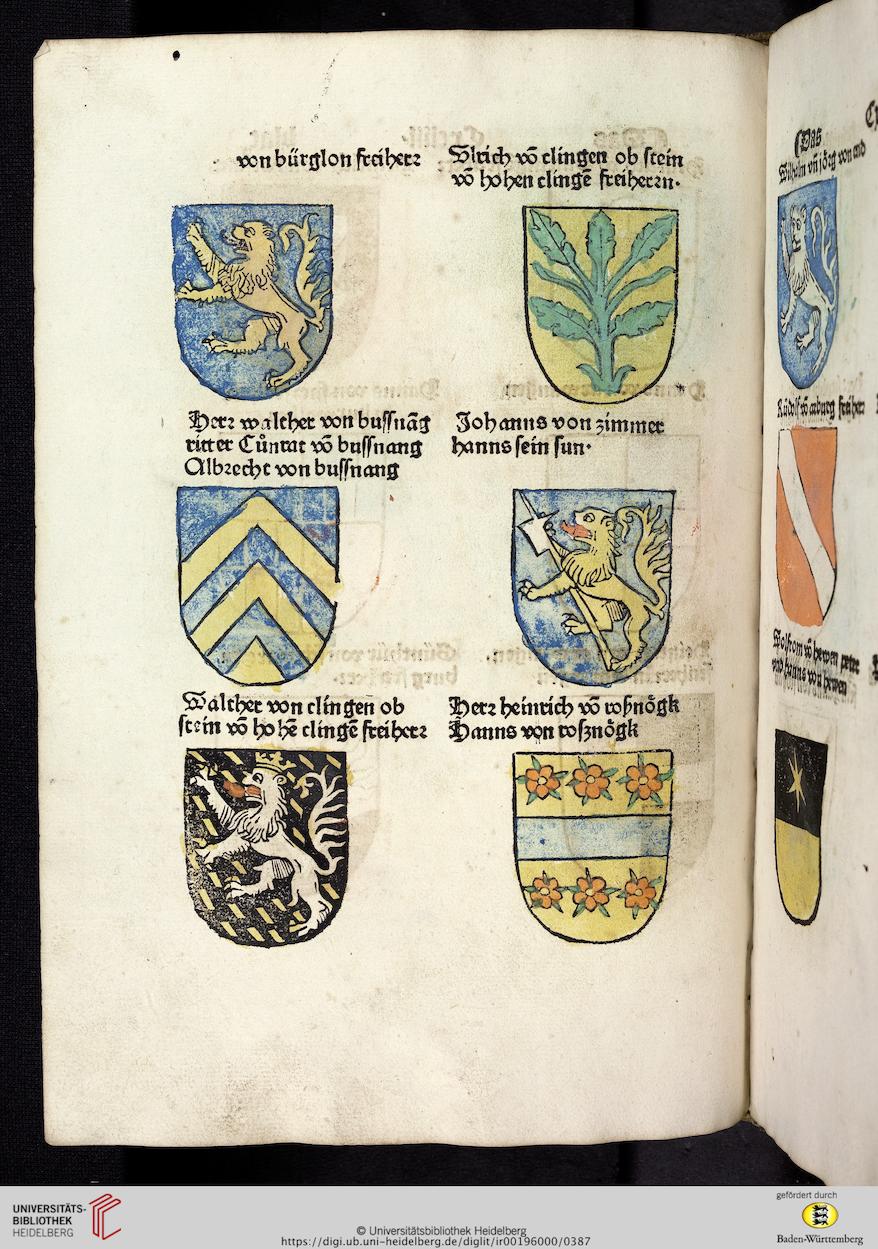 von bürglon freiherr
Ulrich vō clingen ob stein
vō hohen clingē freiherrn.
Herr walther von bussnāg
ritter Cůnrat vō bussnang
Albrecht von bussnang
Johanns von zimmer
hanns sein sun.
Walther von clingen ob
stein vō hohē clingē freiherr
Herr heinrich vō rosznögk
Hanns von rosznögk
Das
Wilhelm vñ jörg von end
Růdolf vō arburg freiherr
Wolfrom vō hewen peter
vnd hanns von hewen
UNIVERSITÄTS-
BIBLIOTHEK
HEIDELBERG
© Universitätsbibliothek Heidelberg
https://digi.ub.uni-heidelberg.de/diglit/ir00196000/0387
gefördert durch
Baden-Württemberg